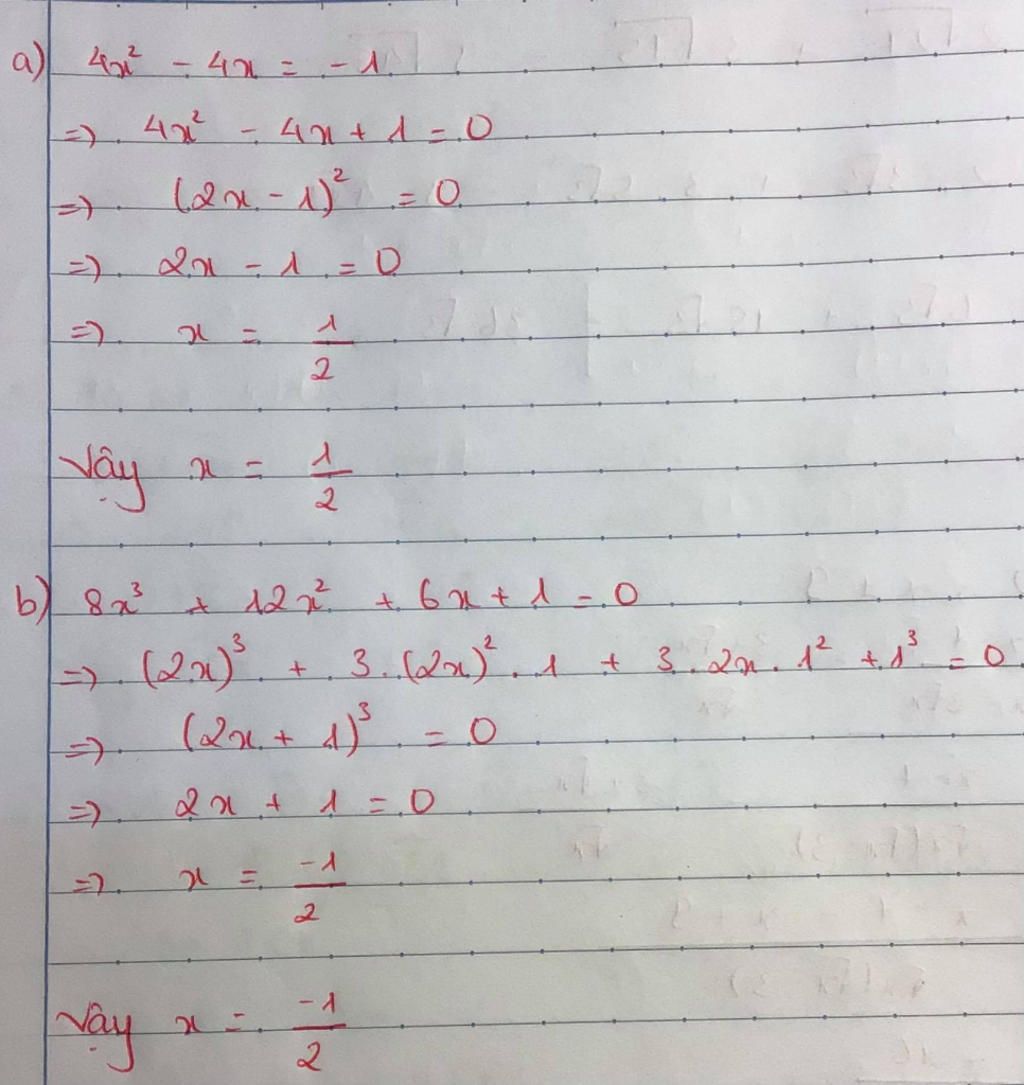 a) 4x² - 4x = -1
=> 4x² - 4x + 1 = 0
=> (2x - 1)² = 0
=> 2x - 1 = 0
=> x = 1/2
Vậy x = 1/2
b) 8x³ + 12x² + 6x + 1 = 0
=> (2x)³ + 3.(2x)².1 + 3.2x.1² + 1³ = 0
=> (2x + 1)³ = 0
=> 2x + 1 = 0
=> x = -1/2
Vậy x = -1/2